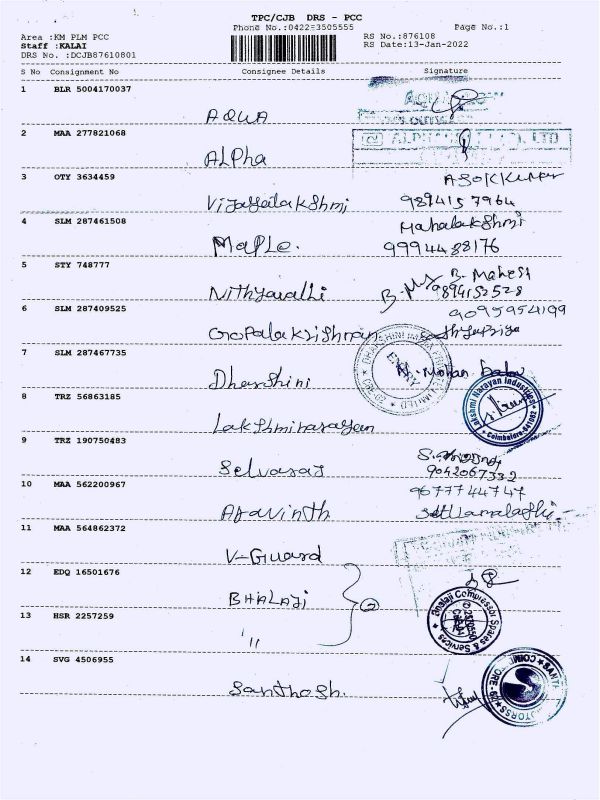 TPC/CJB DRS - PCC
Phone No.:0422-3505555 Page No.:1
Area :KM PLM PCC RS No.:876108
Staff :KALAI RS Date:13-Jan-2022
DRS No. :DCJB87610801
S No Consignment No Consignee Details Signature
1 BLR 5004170037
AQUA
2 MAA 277821068
ALPha
3 OTY 3634459 ASOKKUMAR
Vijayalakshmi 9894157964
4 SLM 287461508 Mahalakshmi
MaPLe. 9994488176
5 STY 748777 B. Mahesh
Nithyavalli 9894152528
6 SLM 287409525 9095954199
Gopalakrishnan Sathyapriya
7 SLM 287467735
Dharshini Mohan
8 TRZ 56863185 Lakshmi Narayan Industries
Lakshminarayan Coimbatore-641062
9 TRZ 190750483
Selvaraj 9042067332
10 MAA 562200967 9677744747
Aravinth
11 MAA 564862372
V-Guard
12 EDQ 16501676
BHALAJI 2
13 HSR 2257259 Bhalaji Compressor Spares & Services
"
14 SVG 4506955
Santhosh.